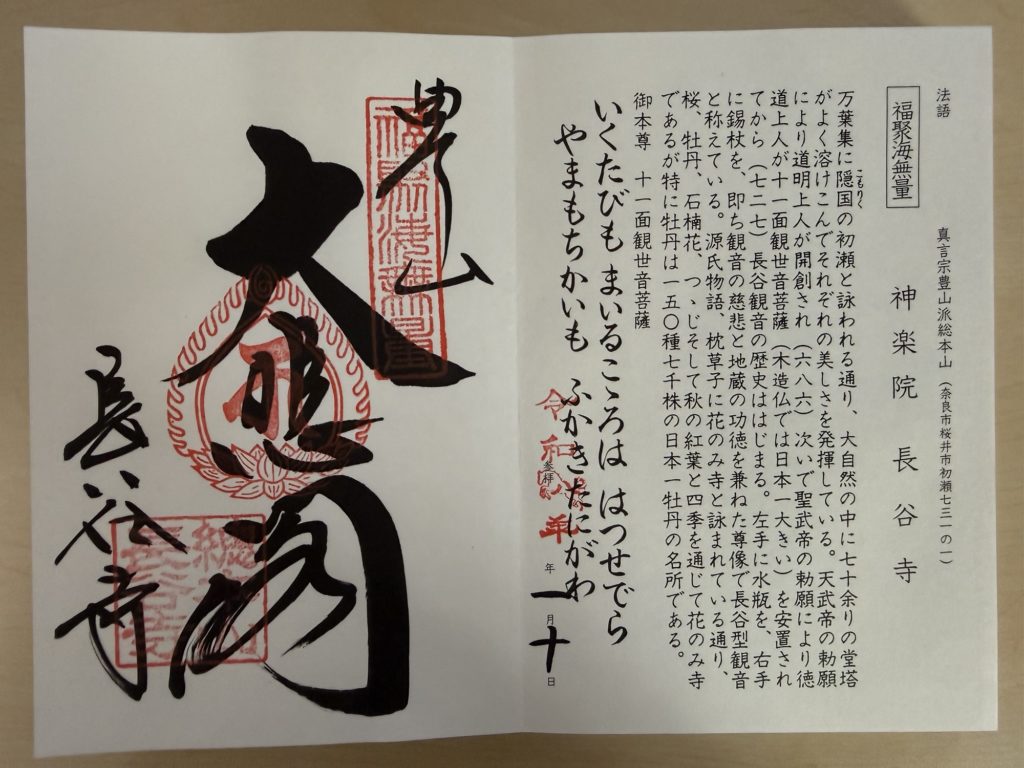 法語
福聚海無量
真言宗豊山派総本山（奈良市桜井市初瀬七三一の一）
神楽院 長谷寺
万葉集に隠国の初瀬と詠われる通り、大自然の中に七十余りの堂塔
こもりく
がよく溶けこんでそれぞれの美しさを発揮している。天武帝の勅願
により道明上人が開創され（六八六）次いで聖武帝の勅願により徳
道上人が十一面観世音菩薩（木造仏では日本一大きい）を安置され
てから（七二七）長谷観音の歴史ははじまる。左手に水瓶を、右手
に錫杖を、即ち観音の慈悲と地蔵の功徳を兼ねた尊像で長谷型観音
と称えている。源氏物語、枕草子に花のみ寺と詠まれている通り、
桜、牡丹、石楠花、つゝじそして秋の紅葉と四季を通じて花のみ寺
であるが特に牡丹は一五〇種七千株の日本一牡丹の名所である。
御本尊 十一面観世音菩薩
いくたびも まいるこゝろは はつせでら
やまもちかいも ふかきたにがわ
令和八年
参拝
年一月十日
豊山
福聚海無量
大悲閣
長谷寺